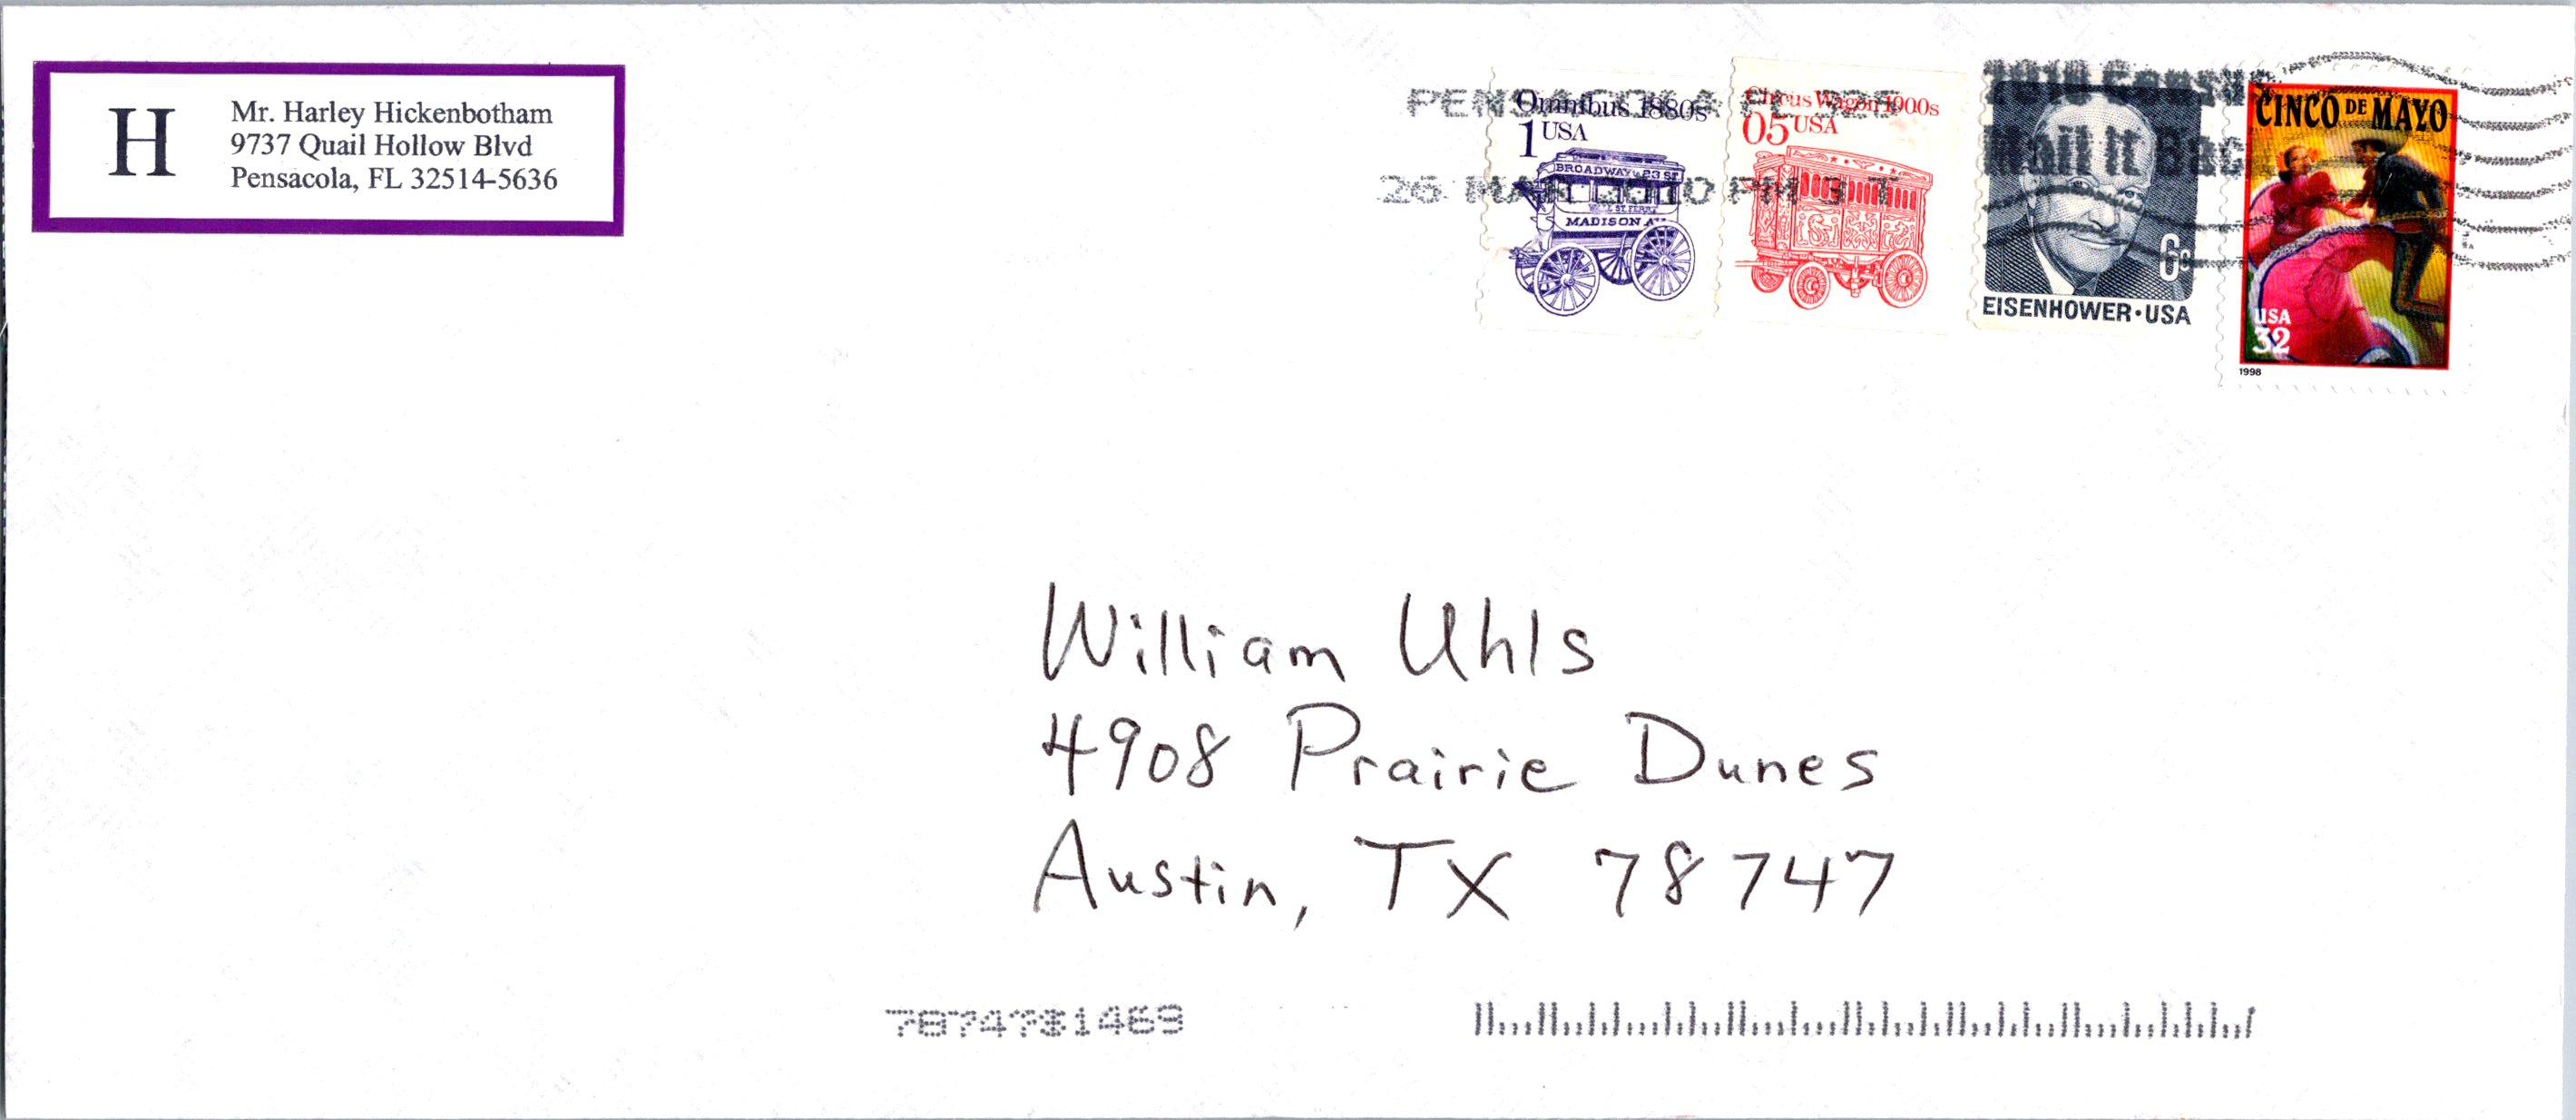 H
Mr. Harley Hickenbotham
9737 Quail Hollow Blvd
Pensacola, FL 32514-5636
PENSACOLA FL 325
26 MAR 2010 PM 3 T
Omnibus 1880s
1 USA
BROADWAY & 23 ST
MADISON AV
Circus Wagon 1900s
05 USA
6c
EISENHOWER · USA
2010 Census
Mail It Back
CINCO DE MAYO
USA
32
1998
William Uhls
4908 Prairie Dunes
Austin, TX 78747
78747$1469